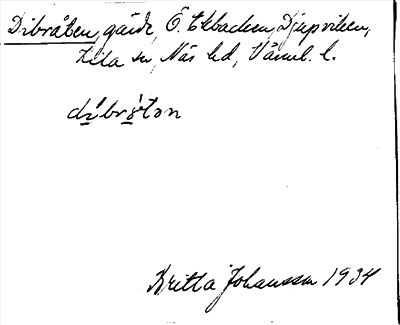 Dibråten, gärde, Ö. Ekbacken, Djupviken,
Kila sn, Näs hd, Värml. l.
di̲′bro̲′tən
Britta Johansson 1934